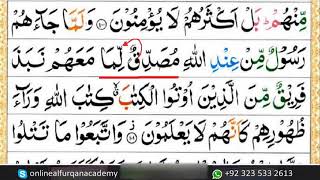 مِّنْهُمْ ۭ بَلْ اَكْثَرُهُمْ لَا يُؤْمِنُوْنَ ﴿۱۰۰﴾ وَلَمَّا جَاۤءَهُمْ
رَسُوْلٌ مِّنْ عِنْدِ اللّٰهِ مُصَدِّقٌ لِّمَا مَعَهُمْ نَبَذَ
فَرِيْقٌ مِّنَ الَّذِيْنَ اُوْتُوا الْكِتٰبَ ۙ كِتٰبَ اللّٰهِ وَرَاۤءَ
ظُهُوْرِهِمْ كَاَنَّهُمْ لَا يَعْلَمُوْنَ ﴿۱۰۱﴾ وَاتَّبَعُوْا مَا تَتْلُوا
onlinealfurqanacademy +92 323 533 2613